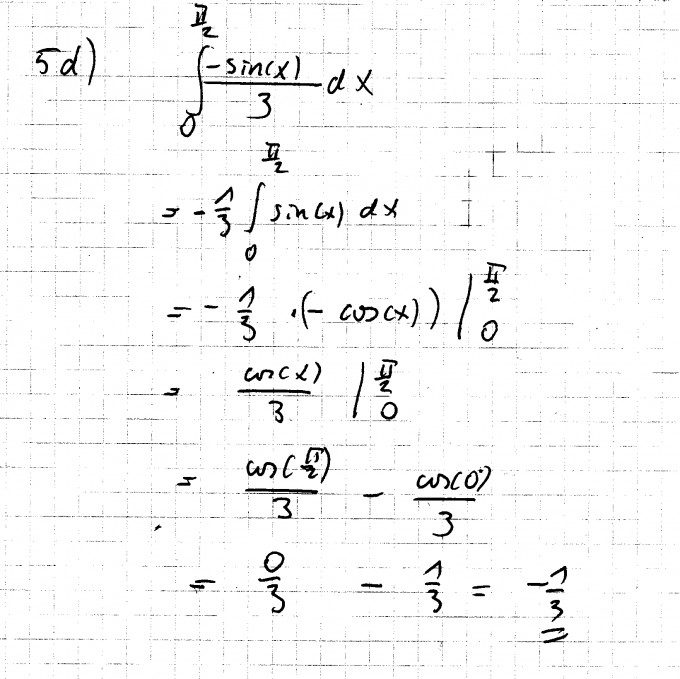 5d) ∫₀^(π/2) (-sin(x))/3 dx
= -1/3 ∫₀^(π/2) sin(x) dx
= - 1/3 ·(- cos(x)) |₀^(π/2)
= cos(x)/3 |₀^(π/2)
= cos(π/2)/3 - cos(0)/3
= 0/3 - 1/3 = -1/3